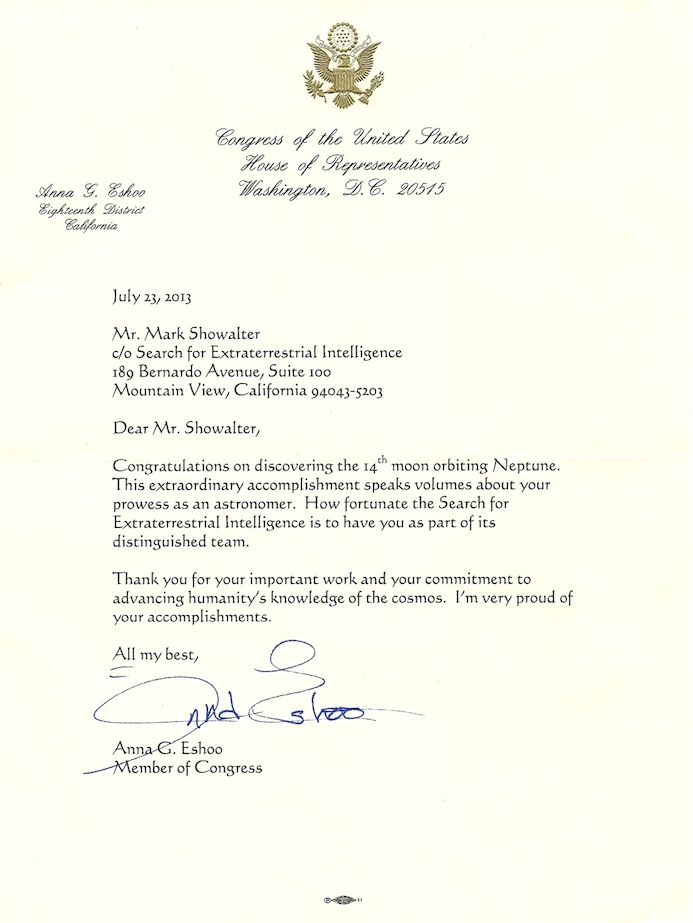 Congress of the United States
House of Representatives
Washington, D.C. 20515
Anna G. Eshoo
Eighteenth District
California
July 23, 2013
Mr. Mark Showalter
c/o Search for Extraterrestrial Intelligence
189 Bernardo Avenue, Suite 100
Mountain View, California 94043-5203
Dear Mr. Showalter,
Congratulations on discovering the 14th moon orbiting Neptune.
This extraordinary accomplishment speaks volumes about your
prowess as an astronomer. How fortunate the Search for
Extraterrestrial Intelligence is to have you as part of its
distinguished team.
Thank you for your important work and your commitment to
advancing humanity's knowledge of the cosmos. I'm very proud of
your accomplishments.
All my best,
Anna Eshoo
Anna G. Eshoo
Member of Congress